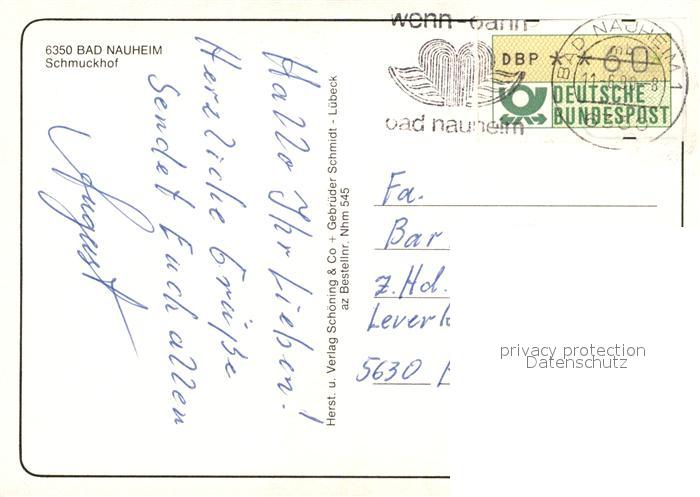 6350 BAD NAUHEIM
Schmuckhof
Hallo Ihr Lieben!
Herzliche Grüße
Sendet Euch allen
August
Herst. u. Verlag Schöning & Co + Gebrüder Schmidt - Lübeck
az Bestellnr. Nhm 545
wenn-dann
bad nauheim
DBP ** 60
DEUTSCHE
BUNDESPOST
BAD NAUHEIM 1
Fa.
Bar
z.Hd.
Leverk
5630
privacy protection
Datenschutz